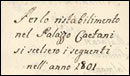 Per lo ristabilimento
nel Palazzo Caetani
si valsero i seguenti
nell'anno 1801